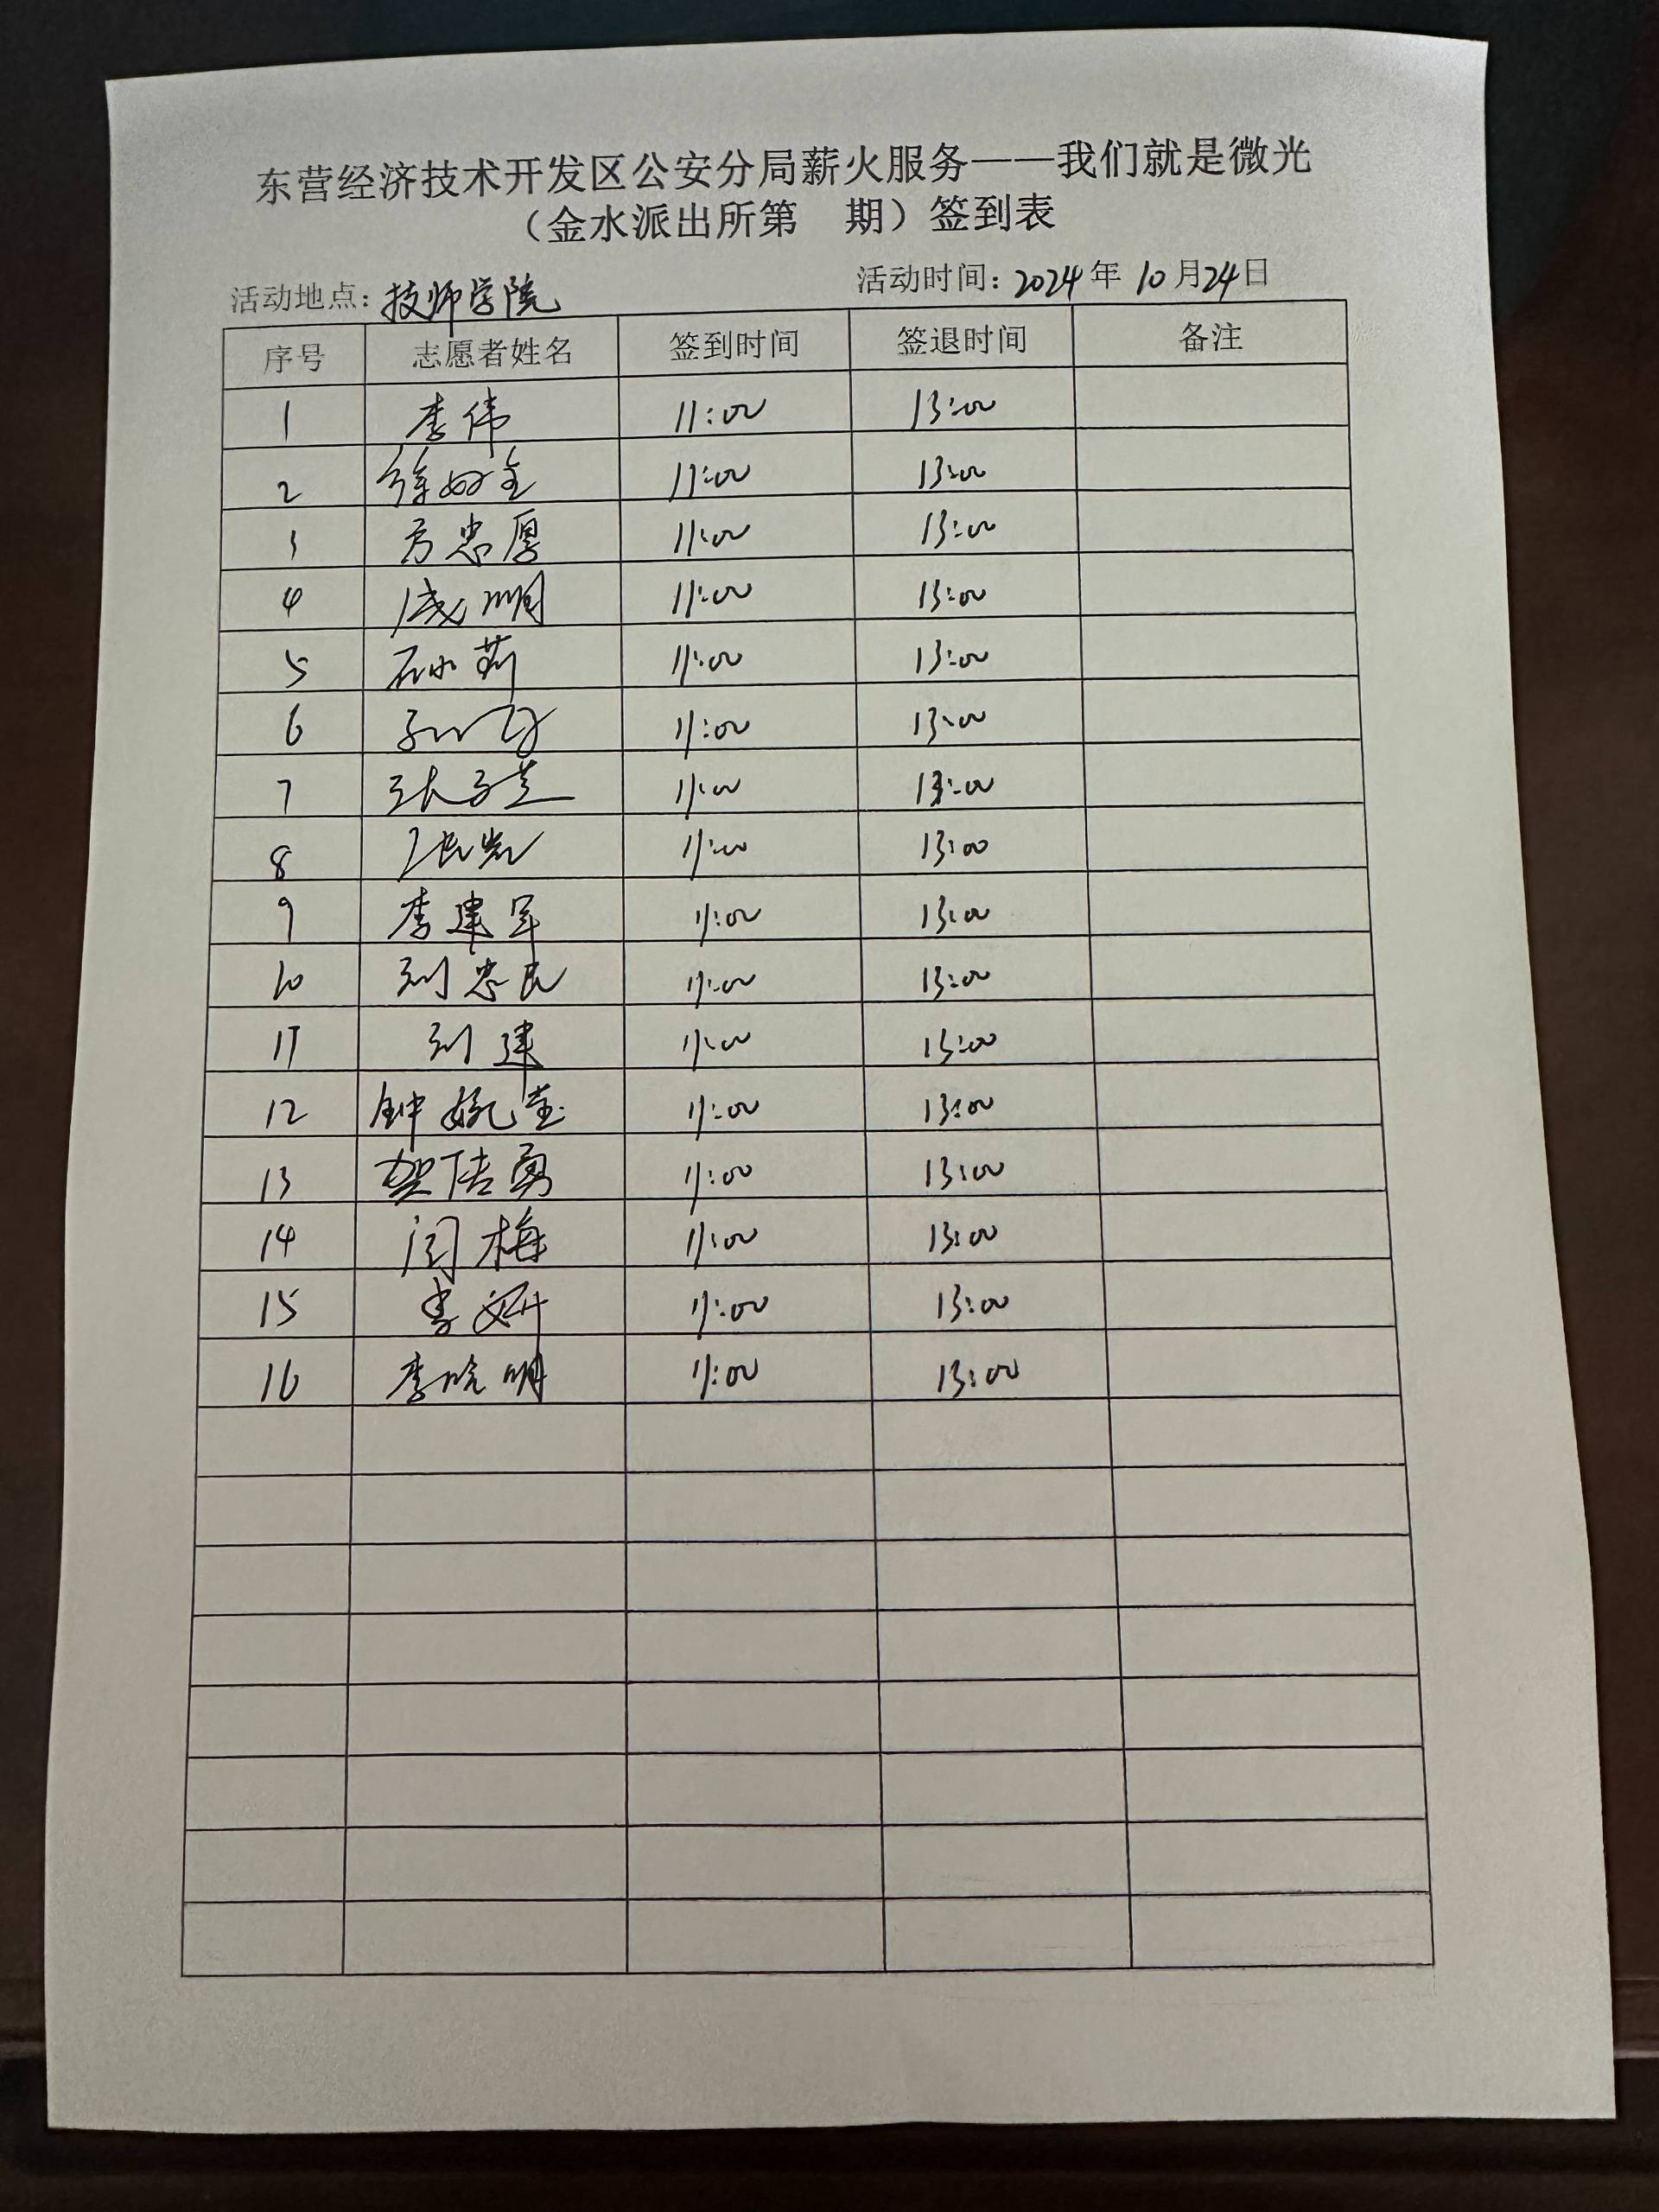 东营经济技术开发区公安分局薪火服务——我们就是微光
（金水派出所第 期）签到表
活动地点：技师学院 活动时间：2024年10月24日
序号 志愿者姓名 签到时间 签退时间 备注
1 李伟 11:00 13:00
2 11:00 13:00
3 方忠厚 11:00 13:00
4 成明 11:00 13:00
5 11:00 13:00
6 11:00 13:00
7 11:00 13:00
8 11:00 13:00
9 李建军 11:00 13:00
10 刘忠民 11:00 13:00
11 刘建 11:00 13:00
12 钟婉莹 11:00 13:00
13 贺传勇 11:00 13:00
14 闫梅 11:00 13:00
15 李妍 11:00 13:00
16 李晓明 11:00 13:00